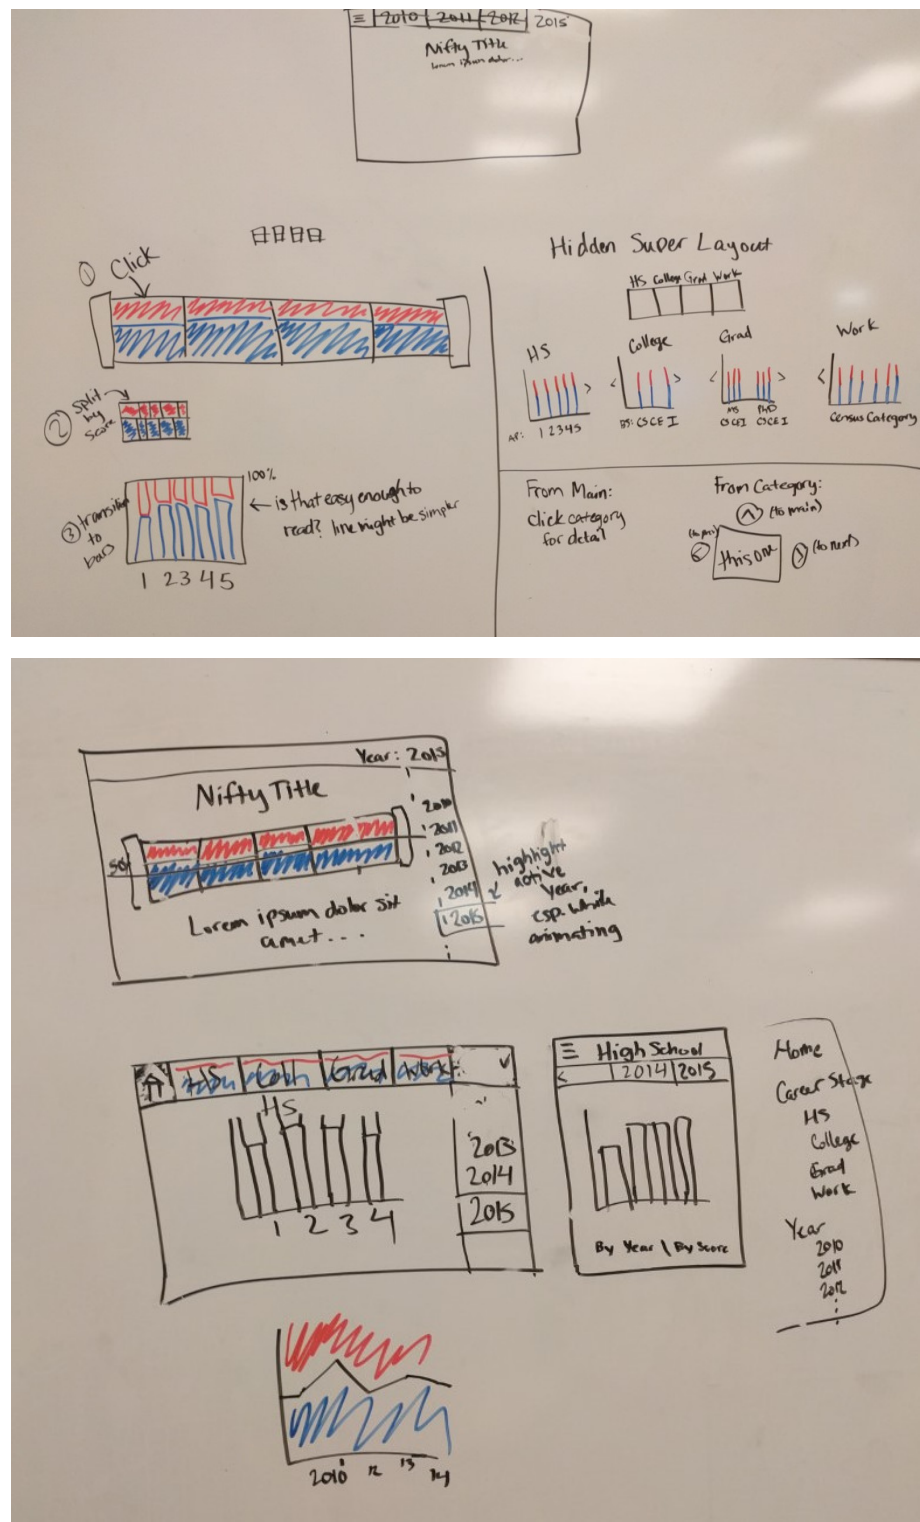 ☰ 2010 2011 2012 2015
Nifty Title
Lorem ipsum dolor...
① Click
② Split
by
Score
③ transition
to
bars
100%
← is that easy enough to
read? line might be simpler
1 2 3 4 5
Hidden Super Layout
HS College Grad Work
HS
AP: 1 2 3 4 5
College
BS: CS CE I
Grad
MS PhD
CS CE I CS CE I
Work
Census Category
From Main:
click category
for detail
From Category:
(to main)
(to prev)
this one
(to next)
Year: 2015
Nifty Title
50
Lorem ipsum dolor sit
amet...
2010
2011
2012
2013
2014
2015
highlight
active
year,
esp. while
animating
HS Coll Grad Work
HS
1 2 3 4
2013
2014
2015
☰ High School
< 2014 2015
By Year \ By Score
Home
Career Stage
HS
College
Grad
Work
Year
2010
2011
2012
2010 12 13 14